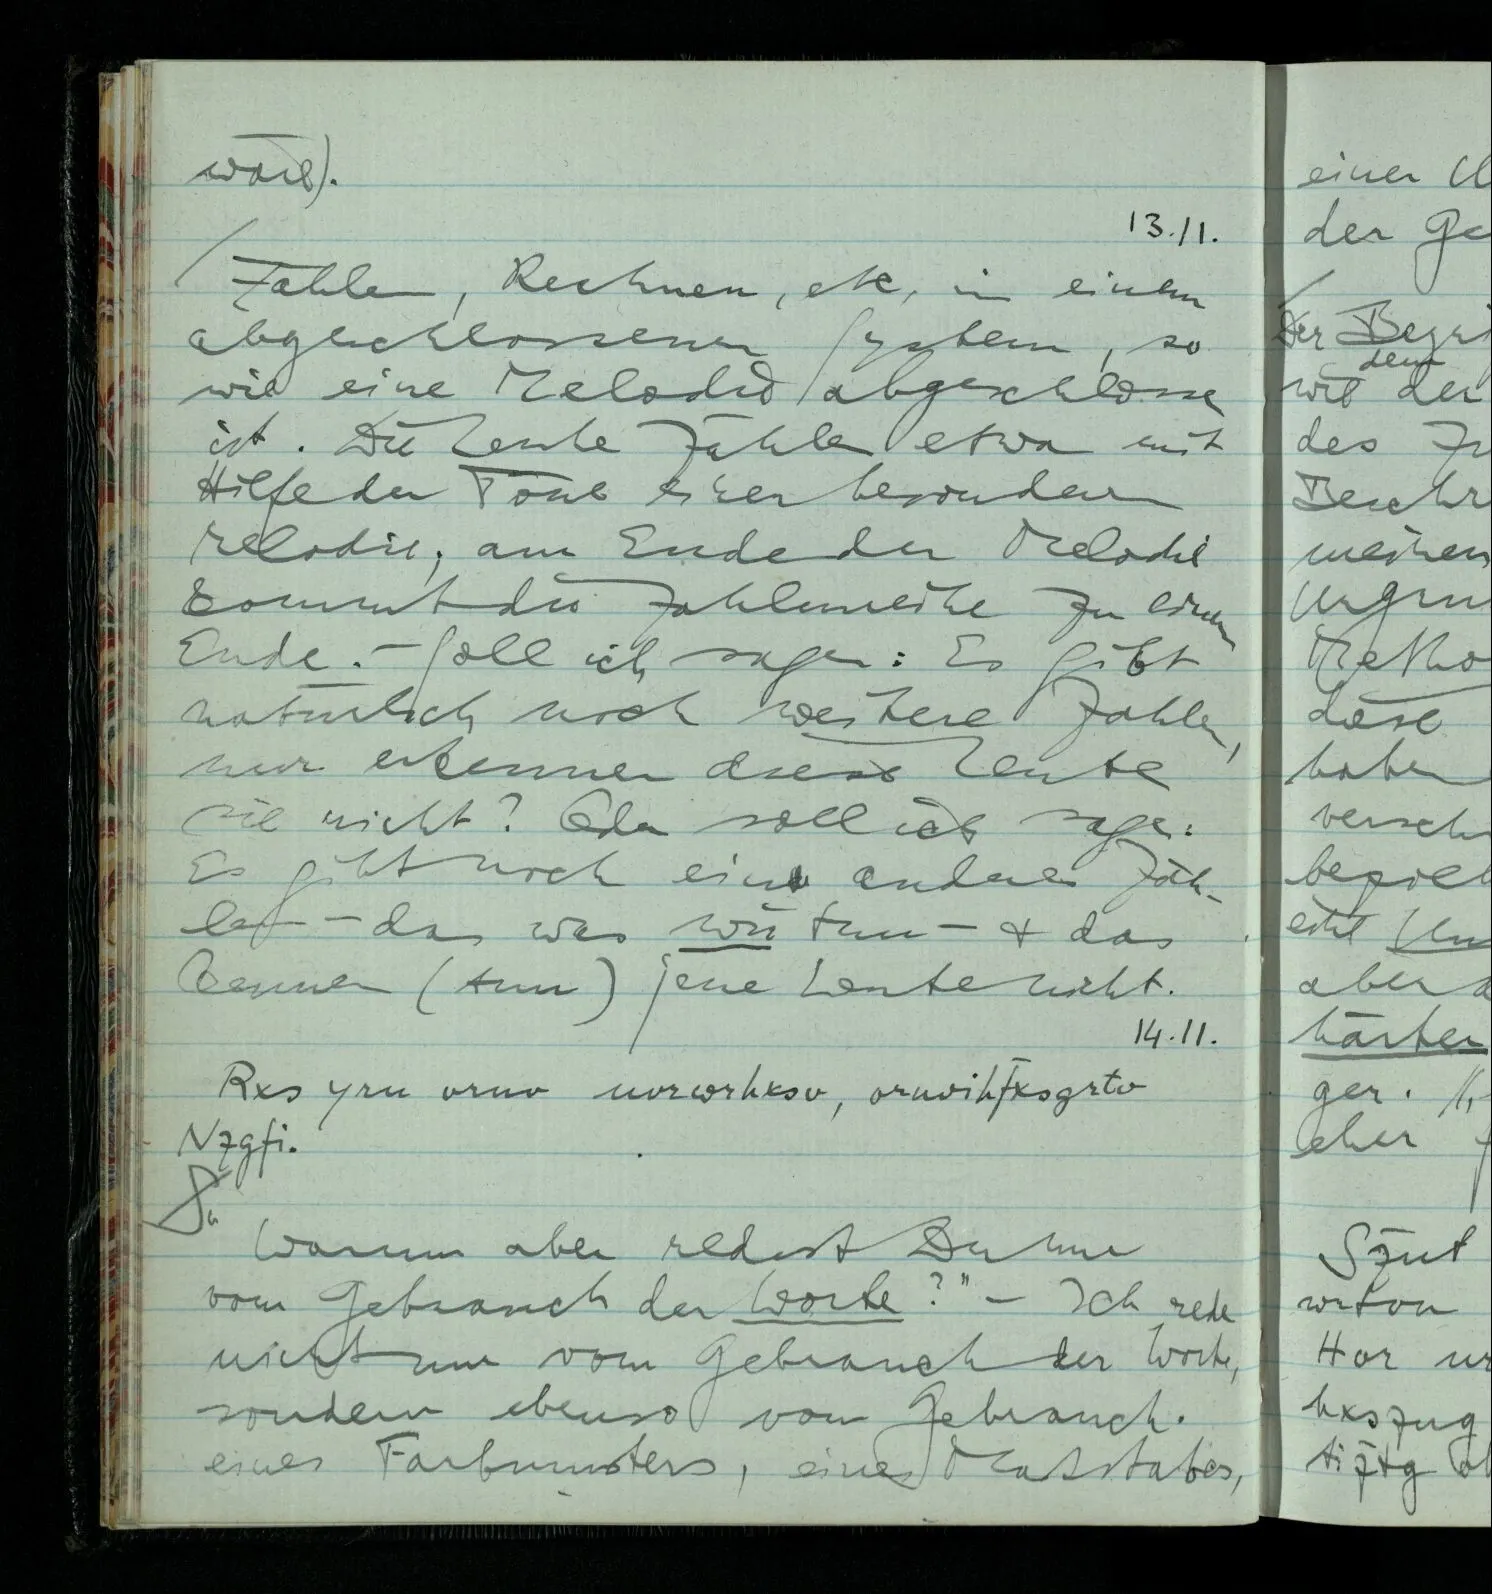 wäre).
13.11.
Zahlen, Rechnen, etc, in einem
abgeschlossenen System, so
wie eine Melodie abgeschlossen
ist. Die Leute zählen etwa mit
Hilfe der Töne einer besondern
Melodie; am Ende der Melodie
kommt die Zahlenreihe zu einem
Ende. – Soll ich sagen: Es gibt
natürlich noch weitere Zahlen,
nur erkennen diese Leute
sie nicht? Oder soll ich sagen:
Es gibt noch ein anderes Zäh-
len – das was wir tun – & das
kennen (tun) jene Leute nicht.
14.11.
Rxs yru ornv uvrwrhxsv, ornvihfxsgrtv
Nzgfi.
S "
Warum aber redest Du nur
vom Gebrauch der Worte?" – Ich rede
nicht nur vom Gebrauch der Worte,
sondern ebenso vom Gebrauch
eines Farbmusters, eines Maßstabes,
einer
der Ge
Der Begri
dem
wie der
des
Beschr
meinen
Urgru
Metho
diese
haben
versch
aber
härter
ger.
eher
Szut
wrtvn
Hor
hxszug